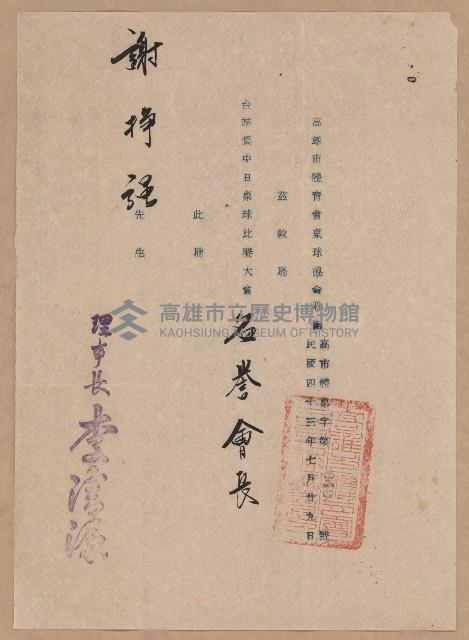 高雄市體育會桌球協會聘函
高市體桌字第 號
民國四十三年七月廿九日
茲敦聘
台端為中日桌球比賽大會名譽會長
此聘
謝掙強先生
理事長李清源
高雄市立歷史博物館
KAOHSIUNG MUSEUM OF HISTORY